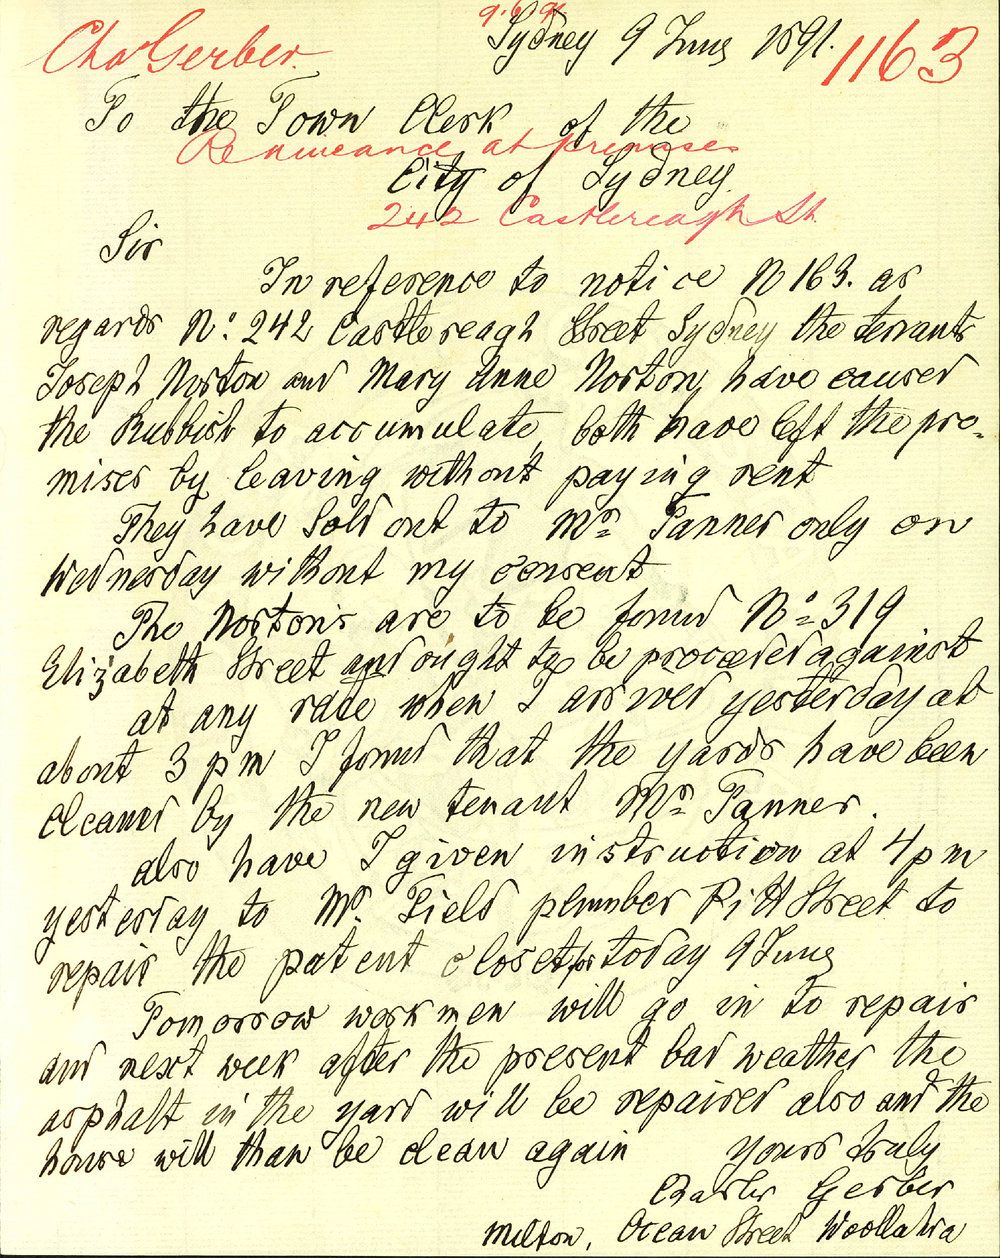 9.6.91.
Chas Gerber.
Sydney 9 June 1891.
1163
To the Town Clerk of the
Re nuisance at premises
City of Sydney
242 Castlereagh St.
Sir
In reference to notice N 163. as
regards No. 242 Castlereagh Street Sydney the tennants
Joseph Norton and Mary Anne Norton, have caused
the Rubbish to accumulate, both have left the pro-
mises by leaving without paying rent
They have Sold out to Mrs Tanner only on
Wednesday without my consent
The Norton's are to be found No 319
Elizabeth Street and ought to be proceeded against
at any rate when I arrived yesterday at
about 3 pm I found that the yards have been
cleaned by the new tenant Mrs Tanner.
also have I given instruction at 4 pm
yesterday to Mr. Field plumber Pitt Street to
repair the patent closet for today 9 June
Tomorrow workmen will go in to repair
and next week after the present bad weather the
asphalt in the yard will be repaired also and the
house will than be clean again yours truly
Charles Gerber
Milton, Ocean Street Woollahra